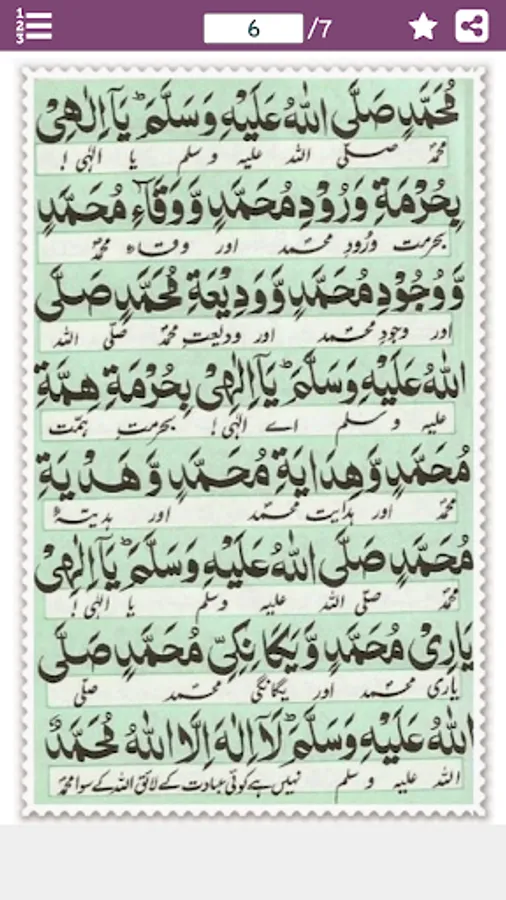 6 /7
مُحَمَّدٍ صَلَّی اللهُ عَلَیْهِ وَسَلَّمَ ؕ یَاۤ اِلٰهِیْ
محمدؐ صلی اللہ علیہ وسلم یا الٰہی !
بِحُرْمَةِ وَرُوْدِ مُحَمَّدٍ وَّوَقَآءِ مُحَمَّدٍ
بحرمت ورُودِ محمد اور وقاءِ محمدؐ
وَّوُجُوْدِ مُحَمَّدٍ وَّوَدِیْعَةِ مُحَمَّدٍ صَلَّی
اور وجودِ محمد اور ودیعتِ محمدؐ صلی اللہ
اللهُ عَلَیْهِ وَسَلَّمَ ؕ یَاۤ اِلٰهِیْ بِحُرْمَةِ هِمَّةِ
علیہ وسلم اے الٰہی ! بحرمت ہمّت
مُحَمَّدٍ وَّهِدَایَةِ مُحَمَّدٍ وَّ هَدْیَةِ
محمدؐ اور ہدایت محمد اور ہدیۂ
مُحَمَّدٍ صَلَّی اللهُ عَلَیْهِ وَسَلَّمَ ؕ یَاۤ اِلٰهِیْ
محمدؐ صلی اللہ علیہ وسلم یا الٰہی !
یَارِیْ مُحَمَّدٍ وَّیَكَانِكِیِّ مُحَمَّدٍ صَلَّی
یاری محمد اور یگانگی محمد صلی
اللهُ عَلَیْهِ وَسَلَّمَ ؕ لَاۤ اِلٰهَ اِلَّا اللهُ مُحَمَّدٌ
اللہ علیہ وسلم نہیں ہے کوئی عبادت کے لائق اللہ کے سوا محمدؐ